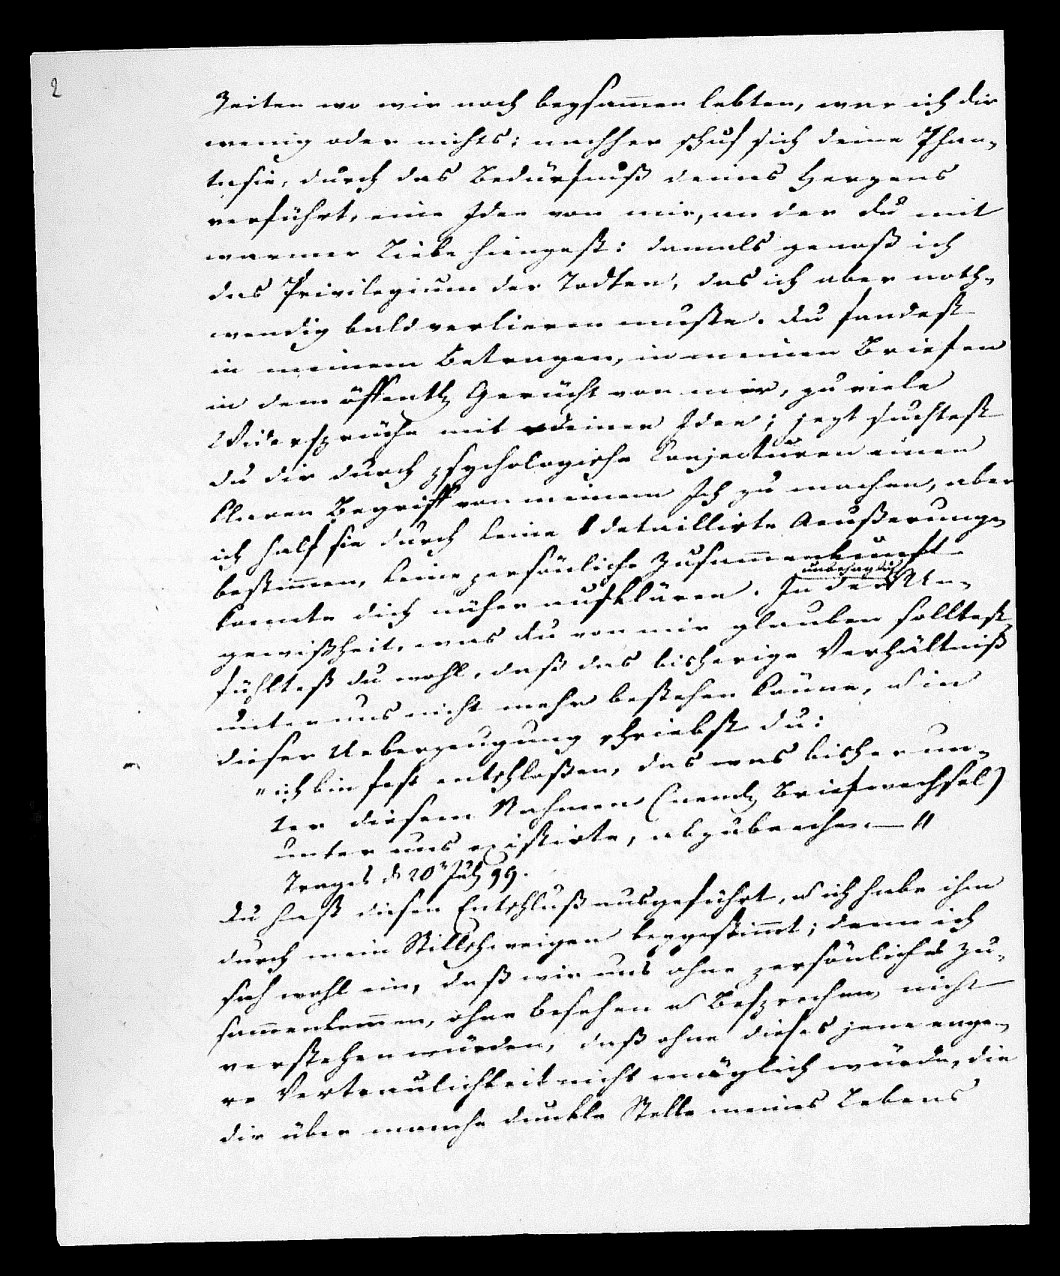 2
Zeiten wo wir noch beysammen lebten, war ich dir
wenig oder nichts; nachher schuf sich deine Phan-
tasie, durch das Bedürfniß deines Herzens
verführt, eine Idee von mir, an der du mit
warmer Liebe hiengest: damals genoß ich
das Privilegium der Todten, das ich aber noth-
wendig bald verlieren mußte. Du fandest
in meinem Betragen, in meinen Briefen
in dem öffentl. Gerücht von mir, zu viele
Widersprüche mit deiner Idee; jezt suchtest
du dir durch psychologische Conjecturen einen
klaren Begriff von meinem Ich zu machen, aber
ich half sie durch keine detaillirte Aeußerungen
bestimmen, keine persönliche Zusammenkunft
konnte dich näher aufklären. In der unbehaglich Un-
gewißheit, was du von mir glauben solltest,
fühltest du wohl, daß das bisherige Verhältniß
unter uns nicht mehr bestehen könne, u in
dieser Ueberzeugung schriebst du:
„ich bin fest entschloßen, das was bisher un-
ter diesem Nahmen (neml. Briefwechsel)
unter uns existirte, abzubrechen. — "
Trages d. 20n July 99.
Du hast diesen Entschluß ausgeführt, u ich habe ihm
durch mein Stillschweigen beygestimmt; denn ich
sah wohl ein, daß wir uns ohne persönliches Zu-
sammenkommen, ohne besehen u Besprechen nicht
verstehen würden, daß ohne dieses jene enge-
re Vertraulichkeit nicht möglich würde, die
dir über manche dunkle Stelle meines Lebens